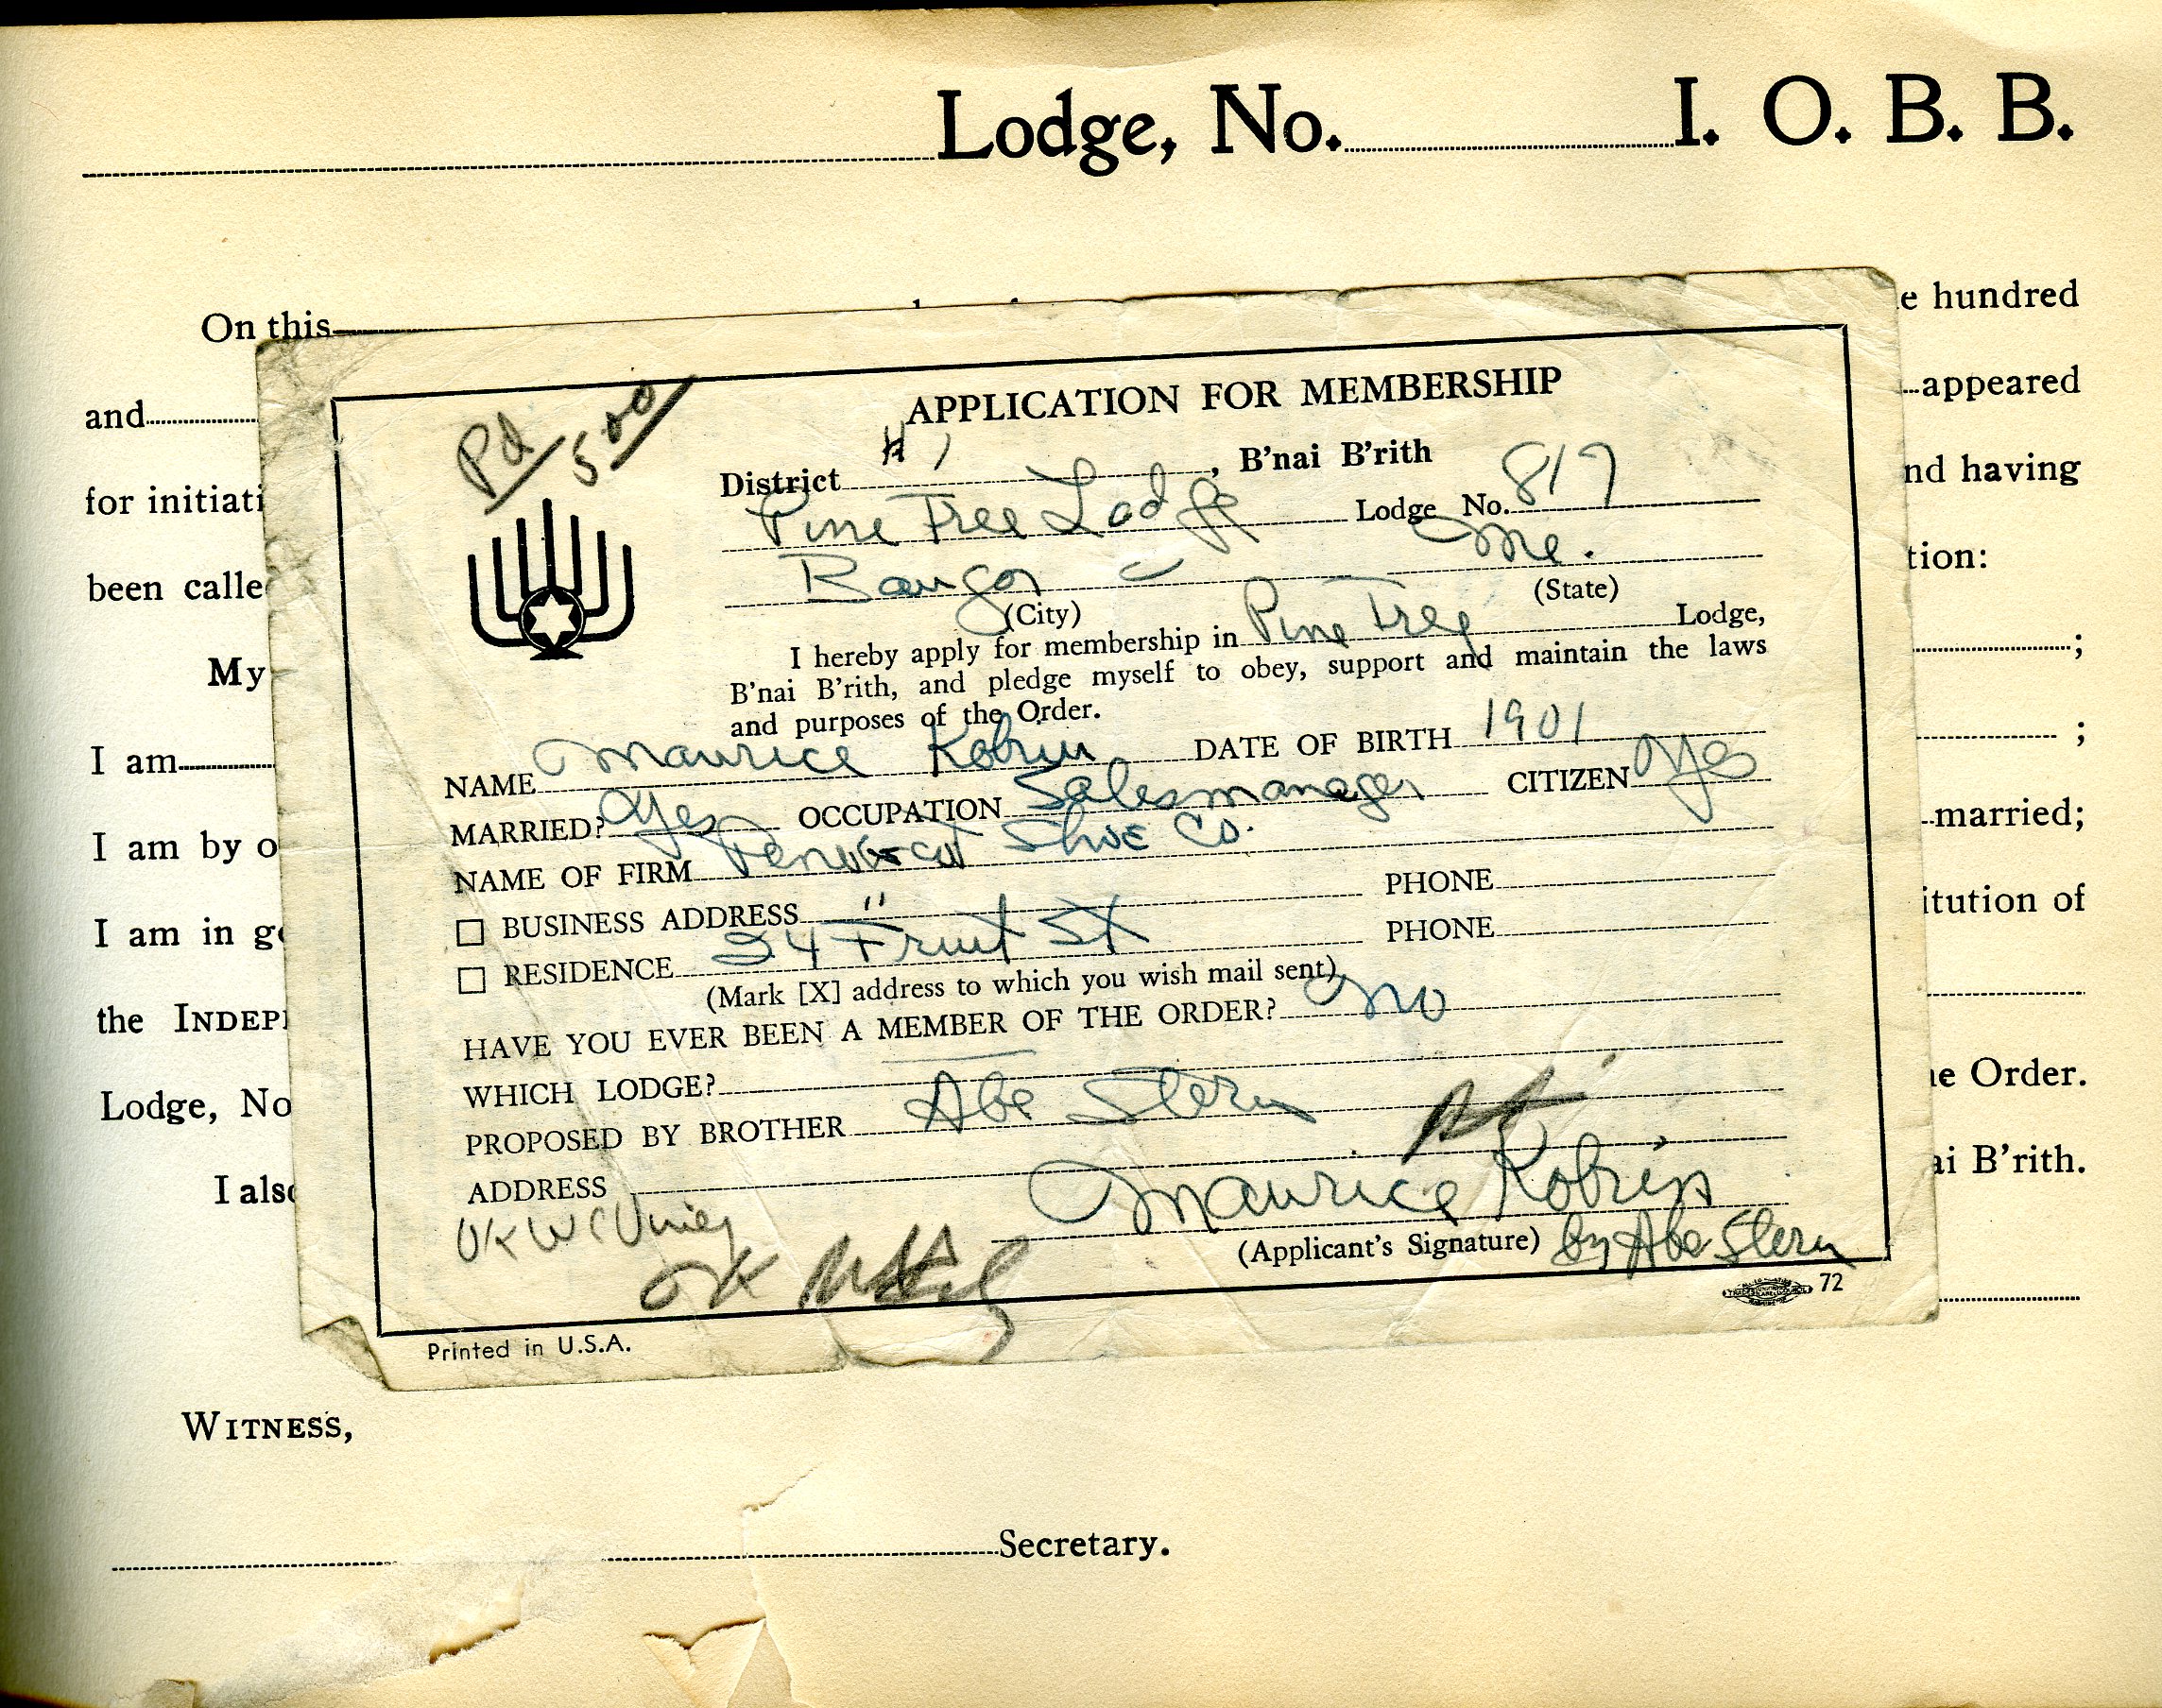 Lodge, No. I. O. B. B.
On this
e hundred
and
appeared
for initiati
nd having
been calle
tion:
My
;
I am
;
I am by o
married;
I am in g
itution of
the INDEP
Lodge, No
e Order.
I also
ai B'rith.
Pd 5.00
APPLICATION FOR MEMBERSHIP
District # 1, B'nai B'rith
Pine Tree Lodge Lodge No. 817
Bangor Me.
(City) (State)
I hereby apply for membership in Pine Tree Lodge,
B'nai B'rith, and pledge myself to obey, support and maintain the laws
and purposes of the Order.
NAME Maurice Kobrin DATE OF BIRTH 1901
MARRIED? Yes OCCUPATION Salesmanager CITIZEN Yes
NAME OF FIRM Penobscot Shoe Co.
BUSINESS ADDRESS " PHONE
RESIDENCE 24 Fruit St PHONE
(Mark [X] address to which you wish mail sent)
HAVE YOU EVER BEEN A MEMBER OF THE ORDER? No
WHICH LODGE?
PROPOSED BY BROTHER Abe Stern
ADDRESS
Maurice Kobrin
(Applicant's Signature) by Abe Stern
OK
OK
72
Printed in U.S.A.
WITNESS,
Secretary.